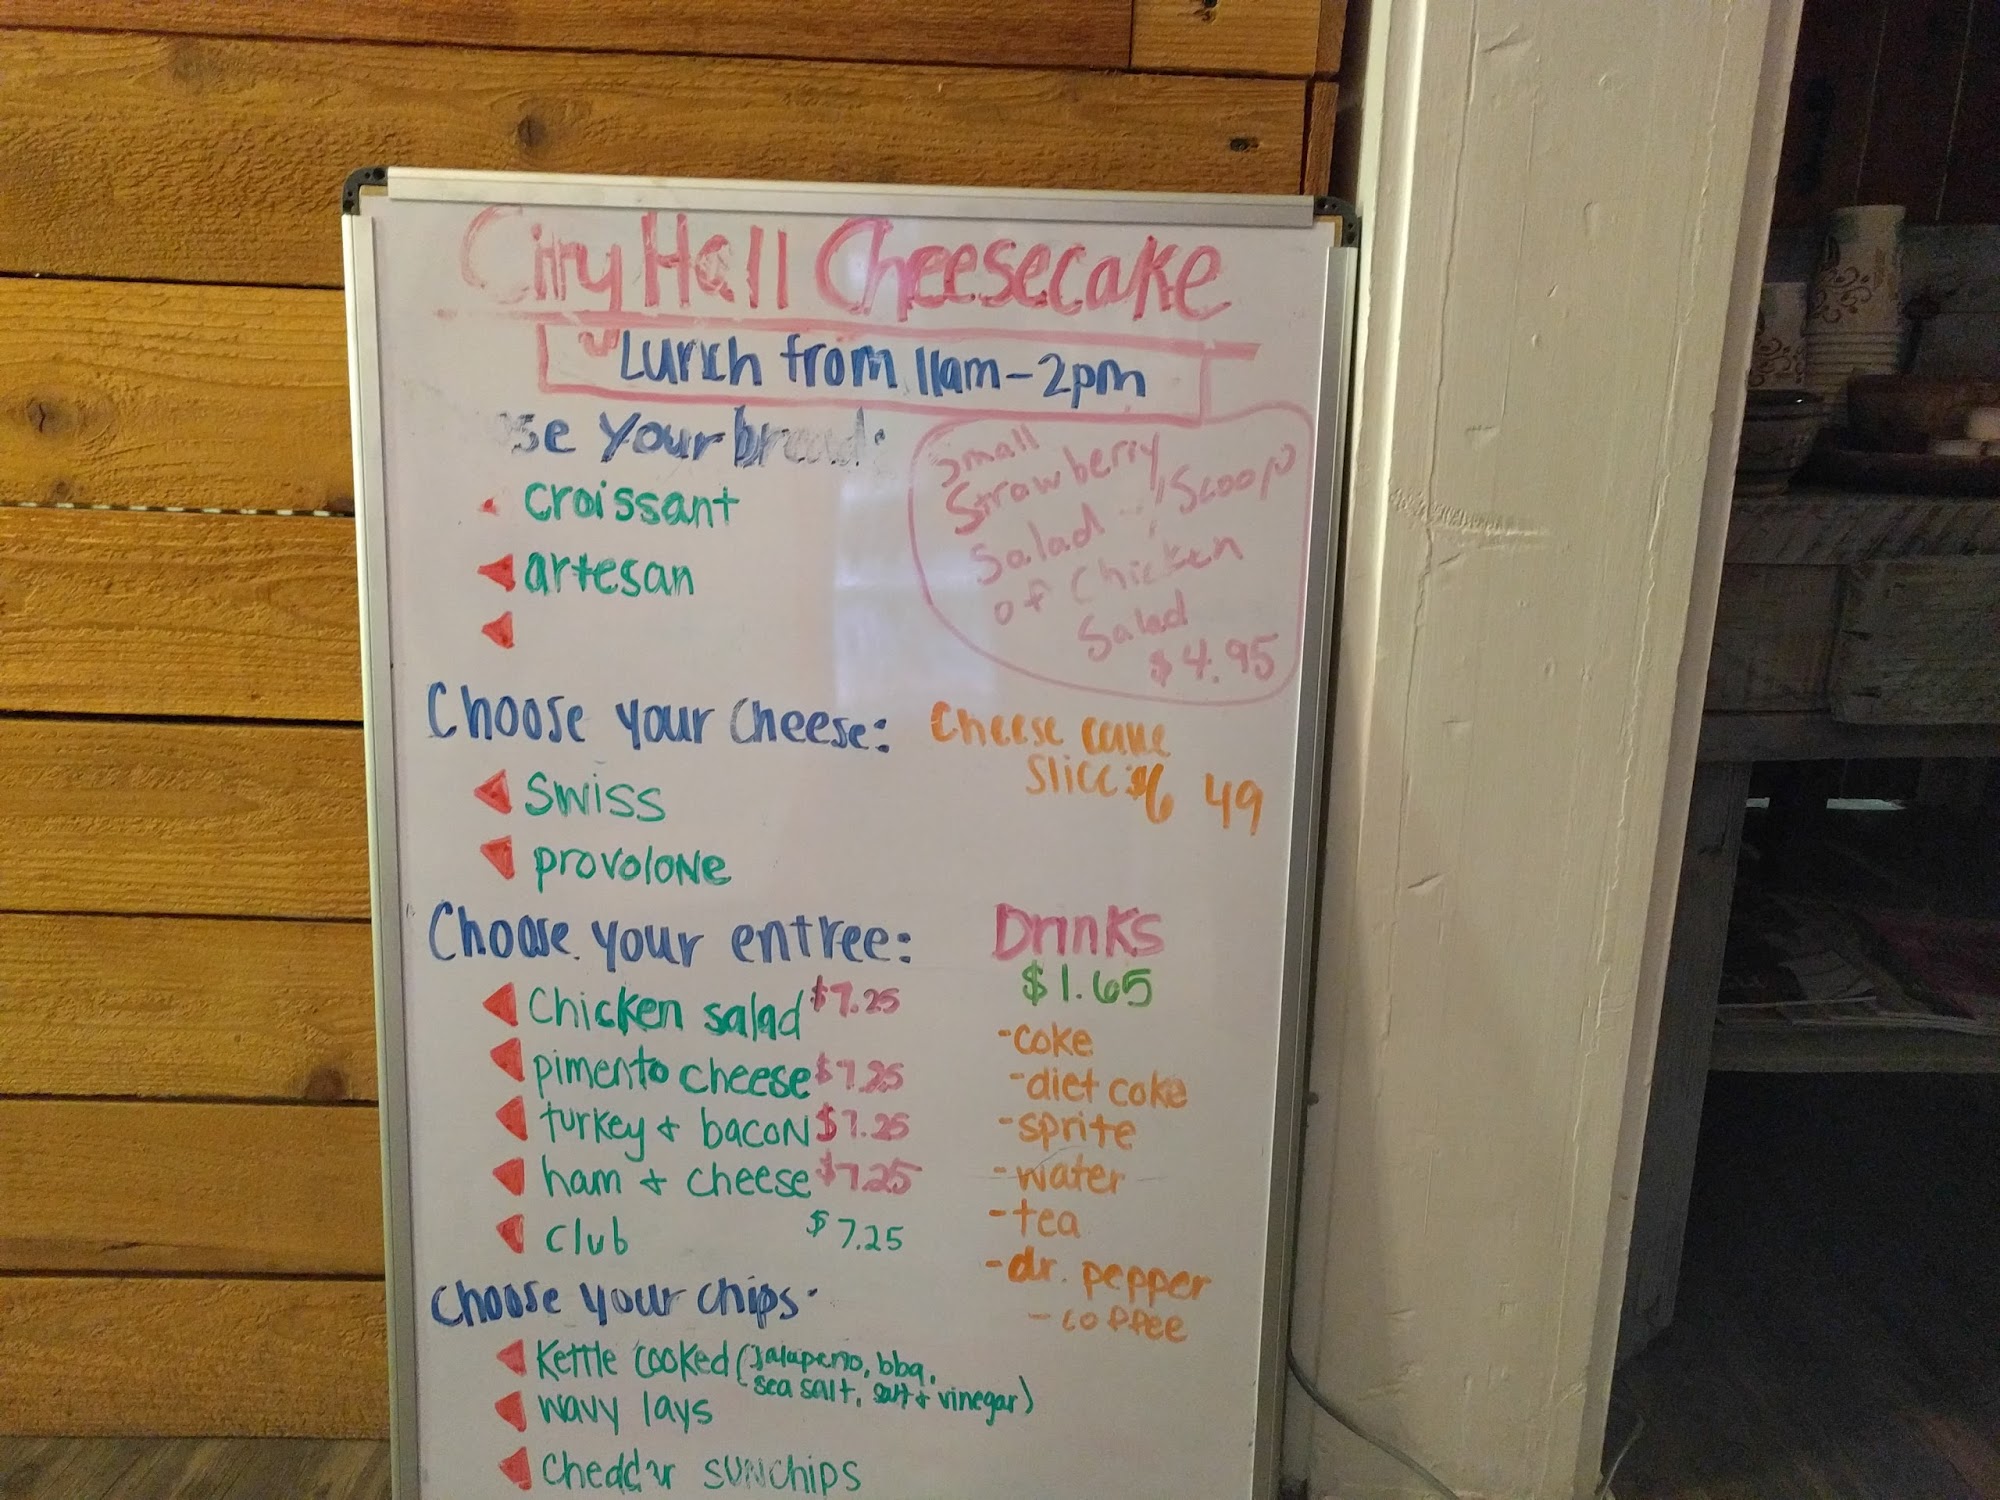 City Hall Cheesecake
Lunch from 11am-2pm
se your bread:
croissant
artesan
Small
Strawberry
Salad w/ Scoop
of Chicken
Salad
$4.95
Choose your cheese:
swiss
provolone
Cheese cake
slice: $6 49
Choose your entree:
Chicken salad $7.25
pimento cheese $7.25
turkey + bacon $7.25
ham + cheese $7.25
club $7.25
Drinks
$1.65
-coke
-diet coke
-sprite
-water
-tea
-dr. pepper
-coffee
Choose your chips.
Kettle cooked (jalapeno, bbq,
sea salt, salt + vinegar)
wavy lays
Cheddar sunchips